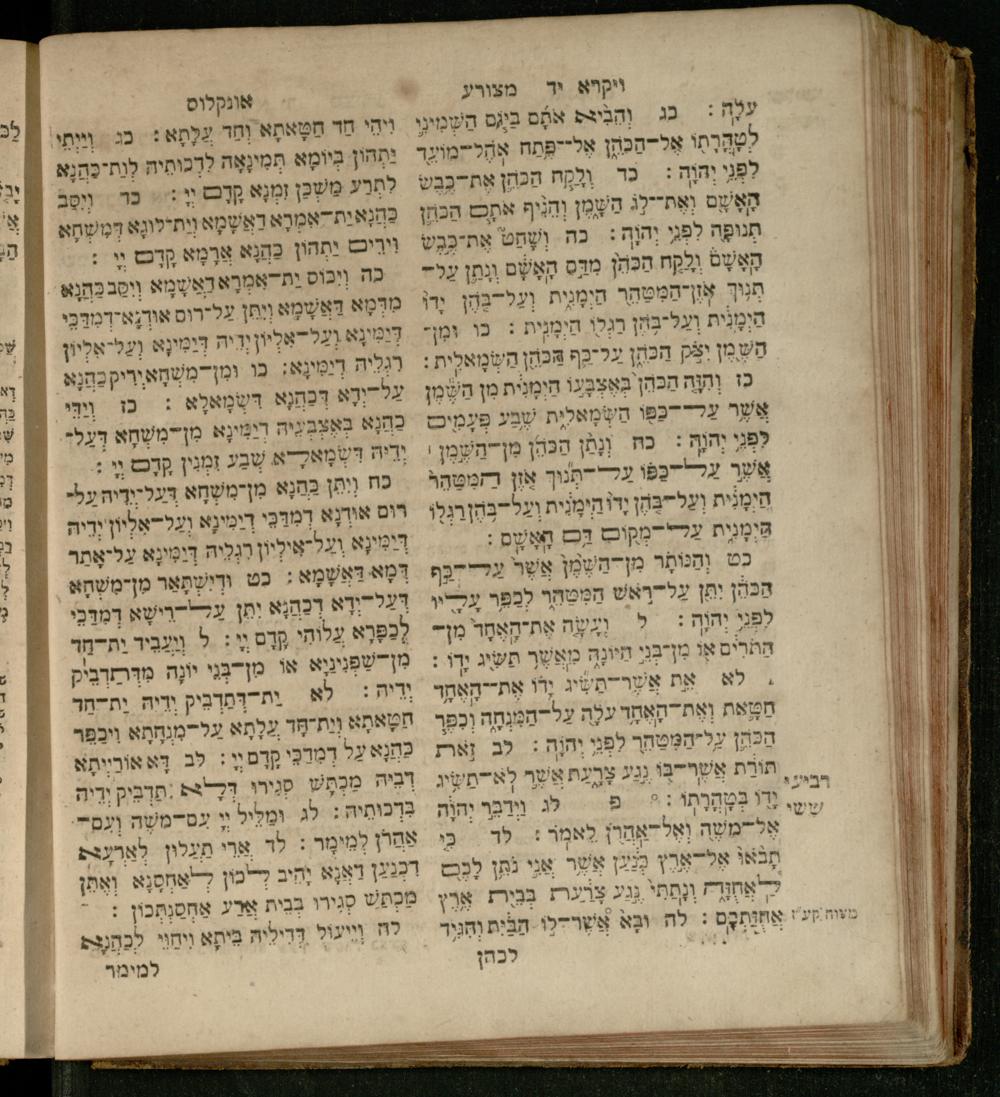 ויקרא יד מצורע
עֹלָֽה׃ כג וְהֵבִ֨יא אֹתָ֜ם בַּיּ֧וֹם הַשְּׁמִינִ֛י
לְטׇהֳרָת֖וֹ אֶל־הַכֹּהֵ֑ן אֶל־פֶּ֥תַח אֹֽהֶל־מוֹעֵ֖ד
לִפְנֵ֥י יְהוָֹֽה׃ כד וְלָקַ֧ח הַכֹּהֵ֛ן אֶת־כֶּ֥בֶשׂ
הָאָשָׁ֖ם וְאֶת־לֹ֣ג הַשָּׁ֑מֶן וְהֵנִ֨יף אֹתָ֧ם הַכֹּהֵ֛ן
תְּנוּפָ֖ה לִפְנֵ֥י יְהוָֹֽה׃ כה וְשָׁחַט֮ אֶת־כֶּ֣בֶשׂ
הָֽאָשָׁם֒ וְלָקַ֤ח הַכֹּהֵן֙ מִדַּ֣ם הָֽאָשָׁ֔ם וְנָתַ֛ן עַל־
תְּנ֥וּךְ אֹֽזֶן־הַמִּטַּהֵ֖ר הַיְמָנִ֑ית וְעַל־בֹּ֤הֶן יָדוֹ֙
הַיְמָנִ֔ית וְעַל־בֹּ֥הֶן רַגְל֖וֹ הַיְמָנִֽית׃ כו וּמִן־
הַשֶּׁ֖מֶן יִצֹ֣ק הַכֹּהֵ֑ן עַל־כַּ֥ף הַכֹּהֵ֖ן הַשְּׂמָאלִֽית׃
כז וְהִזָּ֤ה הַכֹּהֵן֙ בְּאֶצְבָּע֣וֹ הַיְמָנִ֔ית מִן הַשֶּׁ֕מֶן
אֲשֶׁ֥ר עַל־כַּפּ֖וֹ הַשְּׂמָאלִ֑ית שֶׁ֥בַע פְּעָמִ֖ים
לִפְנֵ֥י יְהוָֹֽה׃ כח וְנָתַ֨ן הַכֹּהֵ֜ן מִן־הַשֶּׁ֣מֶן ׀
אֲשֶׁ֣ר עַל־כַּפּ֗וֹ עַל־תְּנ֞וּךְ אֹ֤זֶן הַמִּטַּהֵר֙
הַיְמָנִ֔ית וְעַל־בֹּ֤הֶן יָדוֹ֙ הַיְמָנִ֔ית וְעַל־בֹּ֥הֶן רַגְל֖וֹ
הַיְמָנִ֑ית עַל־מְק֖וֹם דַּ֥ם הָאָשָֽׁם׃
כט וְהַנּוֹתָ֗ר מִן־הַשֶּׁ֙מֶן֙ אֲשֶׁר֙ עַל־כַּ֣ף
הַכֹּהֵ֔ן יִתֵּ֖ן עַל־רֹ֣אשׁ הַמִּטַּהֵ֑ר לְכַפֵּ֥ר עָלָ֖יו
לִפְנֵ֥י יְהוָֹֽה׃ ל וְעָשָׂ֤ה אֶת־הָֽאֶחָד֙ מִן־
הַתֹּרִ֔ים א֖וֹ מִן־בְּנֵ֣י הַיּוֹנָ֑ה מֵאֲשֶׁ֥ר תַּשִּׂ֖יג יָדֽוֹ׃
לא אֵ֣ת אֲשֶׁר־תַּשִּׂ֞יג יָד֗וֹ אֶת־הָאֶחָ֥ד
חַטָּ֛את וְאֶת־הָאֶחָ֥ד עֹלָ֖ה עַל־הַמִּנְחָ֑ה וְכִפֶּ֧ר
הַכֹּהֵ֛ן עַ֥ל־הַמִּטַּהֵ֖ר לִפְנֵ֥י יְהוָֹֽה׃ לב זֹ֣את
תּוֹרַ֔ת אֲשֶׁר־בּ֖וֹ נֶ֣גַע צָרָ֑עַת אֲשֶׁ֛ר לֹֽא־תַשִּׂ֥יג
יָד֖וֹ בְּטׇהֳרָתֽוֹ׃ פ לג וַיְדַבֵּ֣ר יְהוָֹ֔ה
אֶל־מֹשֶׁ֥ה וְאֶֽל־אַהֲרֹ֖ן לֵאמֹֽר׃ לד כִּ֤י
תָבֹ֙אוּ֙ אֶל־אֶ֣רֶץ כְּנַ֔עַן אֲשֶׁ֥ר אֲנִ֛י נֹתֵ֥ן לָכֶ֖ם
לַאֲחֻזָּ֑ה וְנָתַתִּי֙ נֶ֣גַע צָרַ֔עַת בְּבֵ֖ית אֶ֥רֶץ
אֲחֻזַּתְכֶֽם׃ לה וּבָא֙ אֲשֶׁר־ל֣וֹ הַבַּ֔יִת וְהִגִּ֥יד
לכהן
רביעי
ששי
מצוה קע״ז
אונקלוס
וִיהֵי חַד חַטָּאתָא וְחַד עֲלָתָא׃ כג וְיַיְתֵי
יַתְהוֹן בְּיוֹמָא תְּמִינָאָה לִדְכוּתֵיהּ לְוַת־כַּהֲנָא
לִתְרַע מַשְׁכַּן זִמְנָא קֳדָם יְיָ׃ כד וְיִסַּב
כַּהֲנָא יַת־אִמְּרָא דַאֲשָׁמָא וְיַת־לוּגָא דְּמִשְׁחָא
וִירִים יַתְהוֹן כַּהֲנָא אֲרָמָא קֳדָם יְיָ׃
כה וְיִכּוֹס יַת־אִמְּרָא דַאֲשָׁמָא וְיִסַּב כַּהֲנָא
מִדְּמָא דַאֲשָׁמָא וְיִתֵּן עַל־רוּם אוּדְנָא־דְמִדַּכֵּי
דְּיַמִּינָא וְעַל־אִלְיוֹן יְדֵיהּ דְּיַמִּינָא וְעַל־אִלְיוֹן
רַגְלֵיהּ דְיַמִּינָא׃ כו וּמִן־מִשְׁחָא יְרִיק כַּהֲנָא
עַל־יְדָא דְכַהֲנָא דִּשְׂמָאלָא׃ כז וְיַדֵּי
כַהֲנָא בְּאֶצְבְּעֵיהּ דְיַמִּינָא מִן־מִשְׁחָא דְּעַל־
יְדֵיהּ דִּשְׂמָאלָא שְׁבַע זִמְנִין קֳדָם יְיָ׃
כח וְיִתֵּן כַּהֲנָא מִן־מִשְׁחָא דְּעַל־יְדֵיהּ עַל־
רוּם אוּדְנָא דְמִדַּכֵּי דְיַמִּינָא וְעַל־אִלְיוֹן יְדֵיהּ
דְּיַמִּינָא וְעַל־אִילְיוֹן רַגְלֵיהּ דְּיַמִּינָא עַל־אֲתַר
דְּמָא דַאֲשָׁמָא׃ כט וּדְיִשְׁתָּאַר מִן־מִשְׁחָא
דְּעַל־יְדָא דְכַהֲנָא יִתֵּן עַל־רֵישָׁא דְמִדַּכֵּי
לְכַפָּרָא עֲלוֹהִי קֳדָם יְיָ׃ ל וְיַעֲבֵיד יַת־חַד
מִן־שַׁפְנִינַיָּא אוֹ מִן־בְּנֵי יוֹנָה מִדְּתַדְבֵּיק
יְדֵיהּ׃ לא יַת־דְּתַדְבֵּיק יְדֵיהּ יַת־חַד
חַטָּאתָא וְיַת־חַד עֲלָתָא עַל־מִנְחָתָא וִיכַפֵּר
כַּהֲנָא עַל דְּמִדַּכֵּי קֳדָם יְיָ׃ לב דָּא אוֹרַיְיתָא
דְּבֵיהּ מַכְתַּשׁ סְגִירוּ דְּלָא תַדְבֵּיק יְדֵיהּ
בִּדְכוּתֵיהּ׃ לג וּמַלֵּיל יְיָ עִם־מֹשֶׁה וְעִם־
אַהֲרֹן לְמֵימָר׃ לד אֲרֵי תֵעֲלוּן לְאַרְעָא
דִכְנַעַן דַּאֲנָא יָהֵיב לְכוֹן לְאַחְסָנָא וְאֶתֵּן
מַכְתַּשׁ סְגִירוּ בְּבֵית אֲרַע אַחְסַנְתְּכוֹן׃
לה וְיֵיעוּל דְּדִילֵיהּ בֵּיתָא וִיחַוֵּי לְכַהֲנָא
למימר